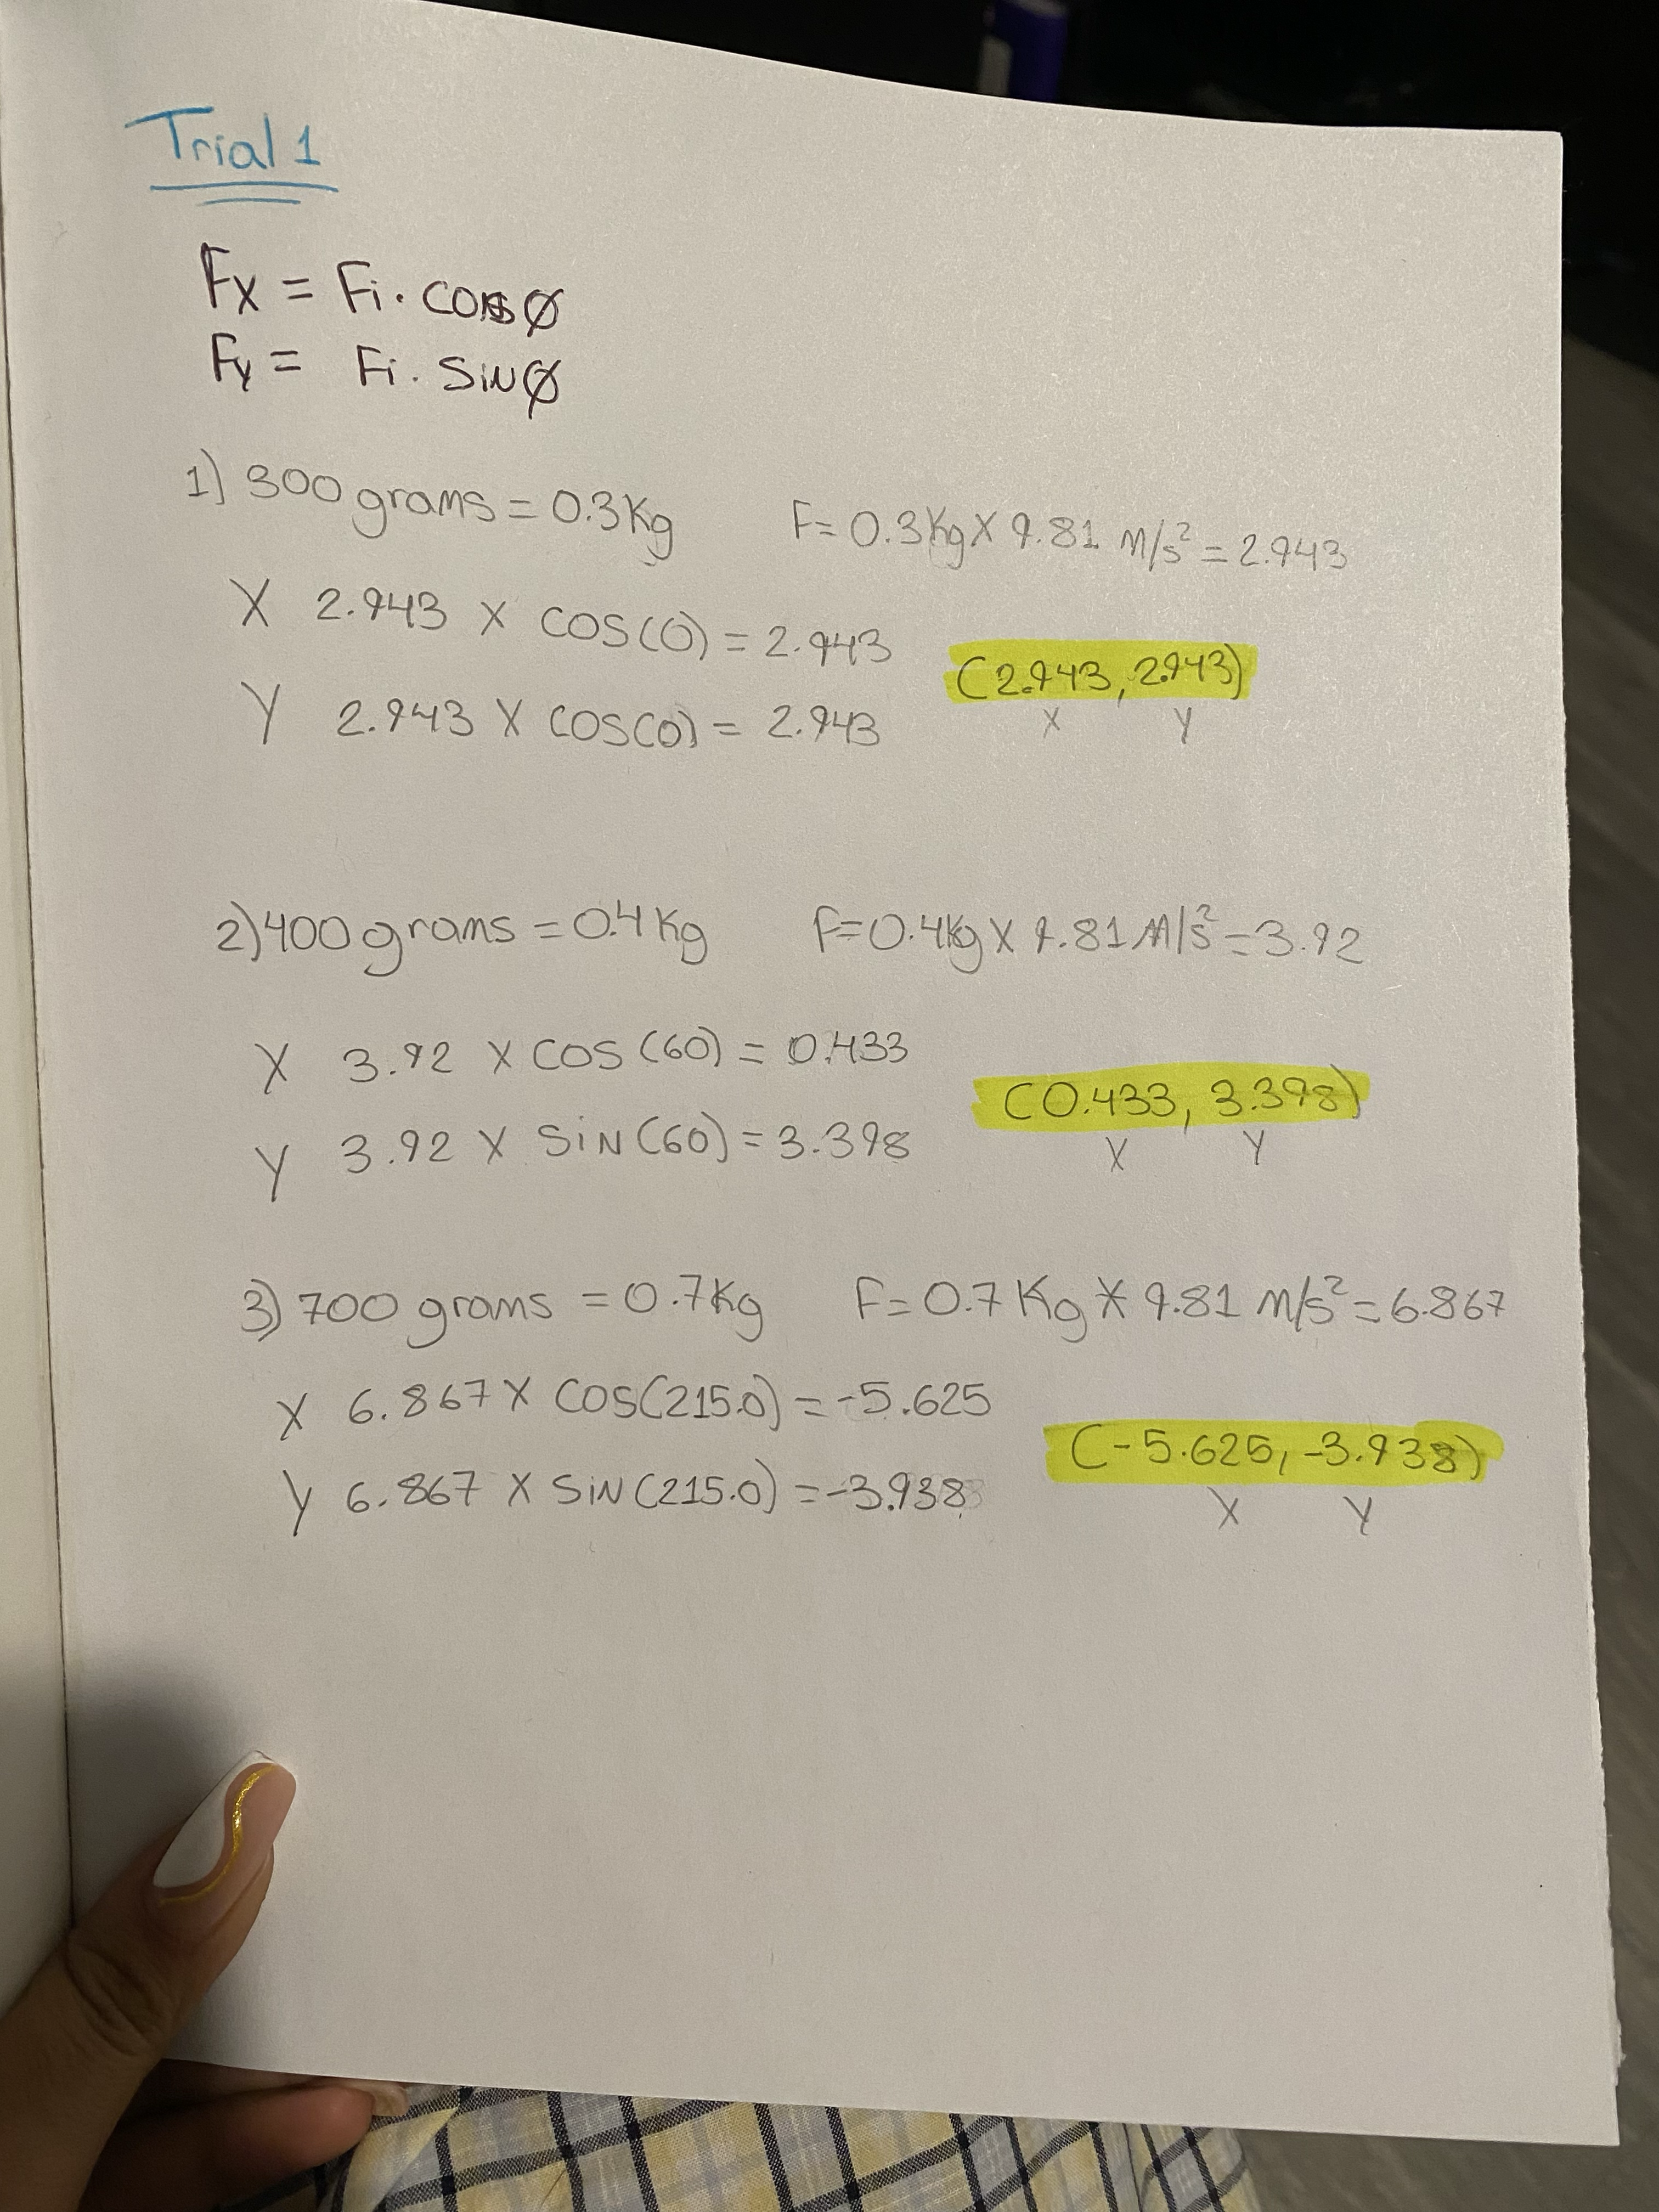 Trial 1
Fx = Fi · cosØ
Fy = Fi · sinØ
1) 300 grams = 0.3 Kg F= 0.3 Kg X 9.81 m/s² = 2.943
X 2.943 X cos(0) = 2.943
(2.943, 2.943)
Y 2.943 X cos(0) = 2.943
X Y
2) 400 grams = 0.4 Kg F=0.4Kg X 9.81 M/s² = 3.92
X 3.92 X cos (60) = 0.433
(0.433, 3.398)
Y 3.92 X sin(60) = 3.398
X Y
3) 700 grams = 0.7Kg F= 0.7 Kg X 9.81 m/s² = 6.867
X 6.867 X cos(215.0) = -5.625
(-5.625, -3.938)
Y 6.867 X sin(215.0) = -3.938
X Y